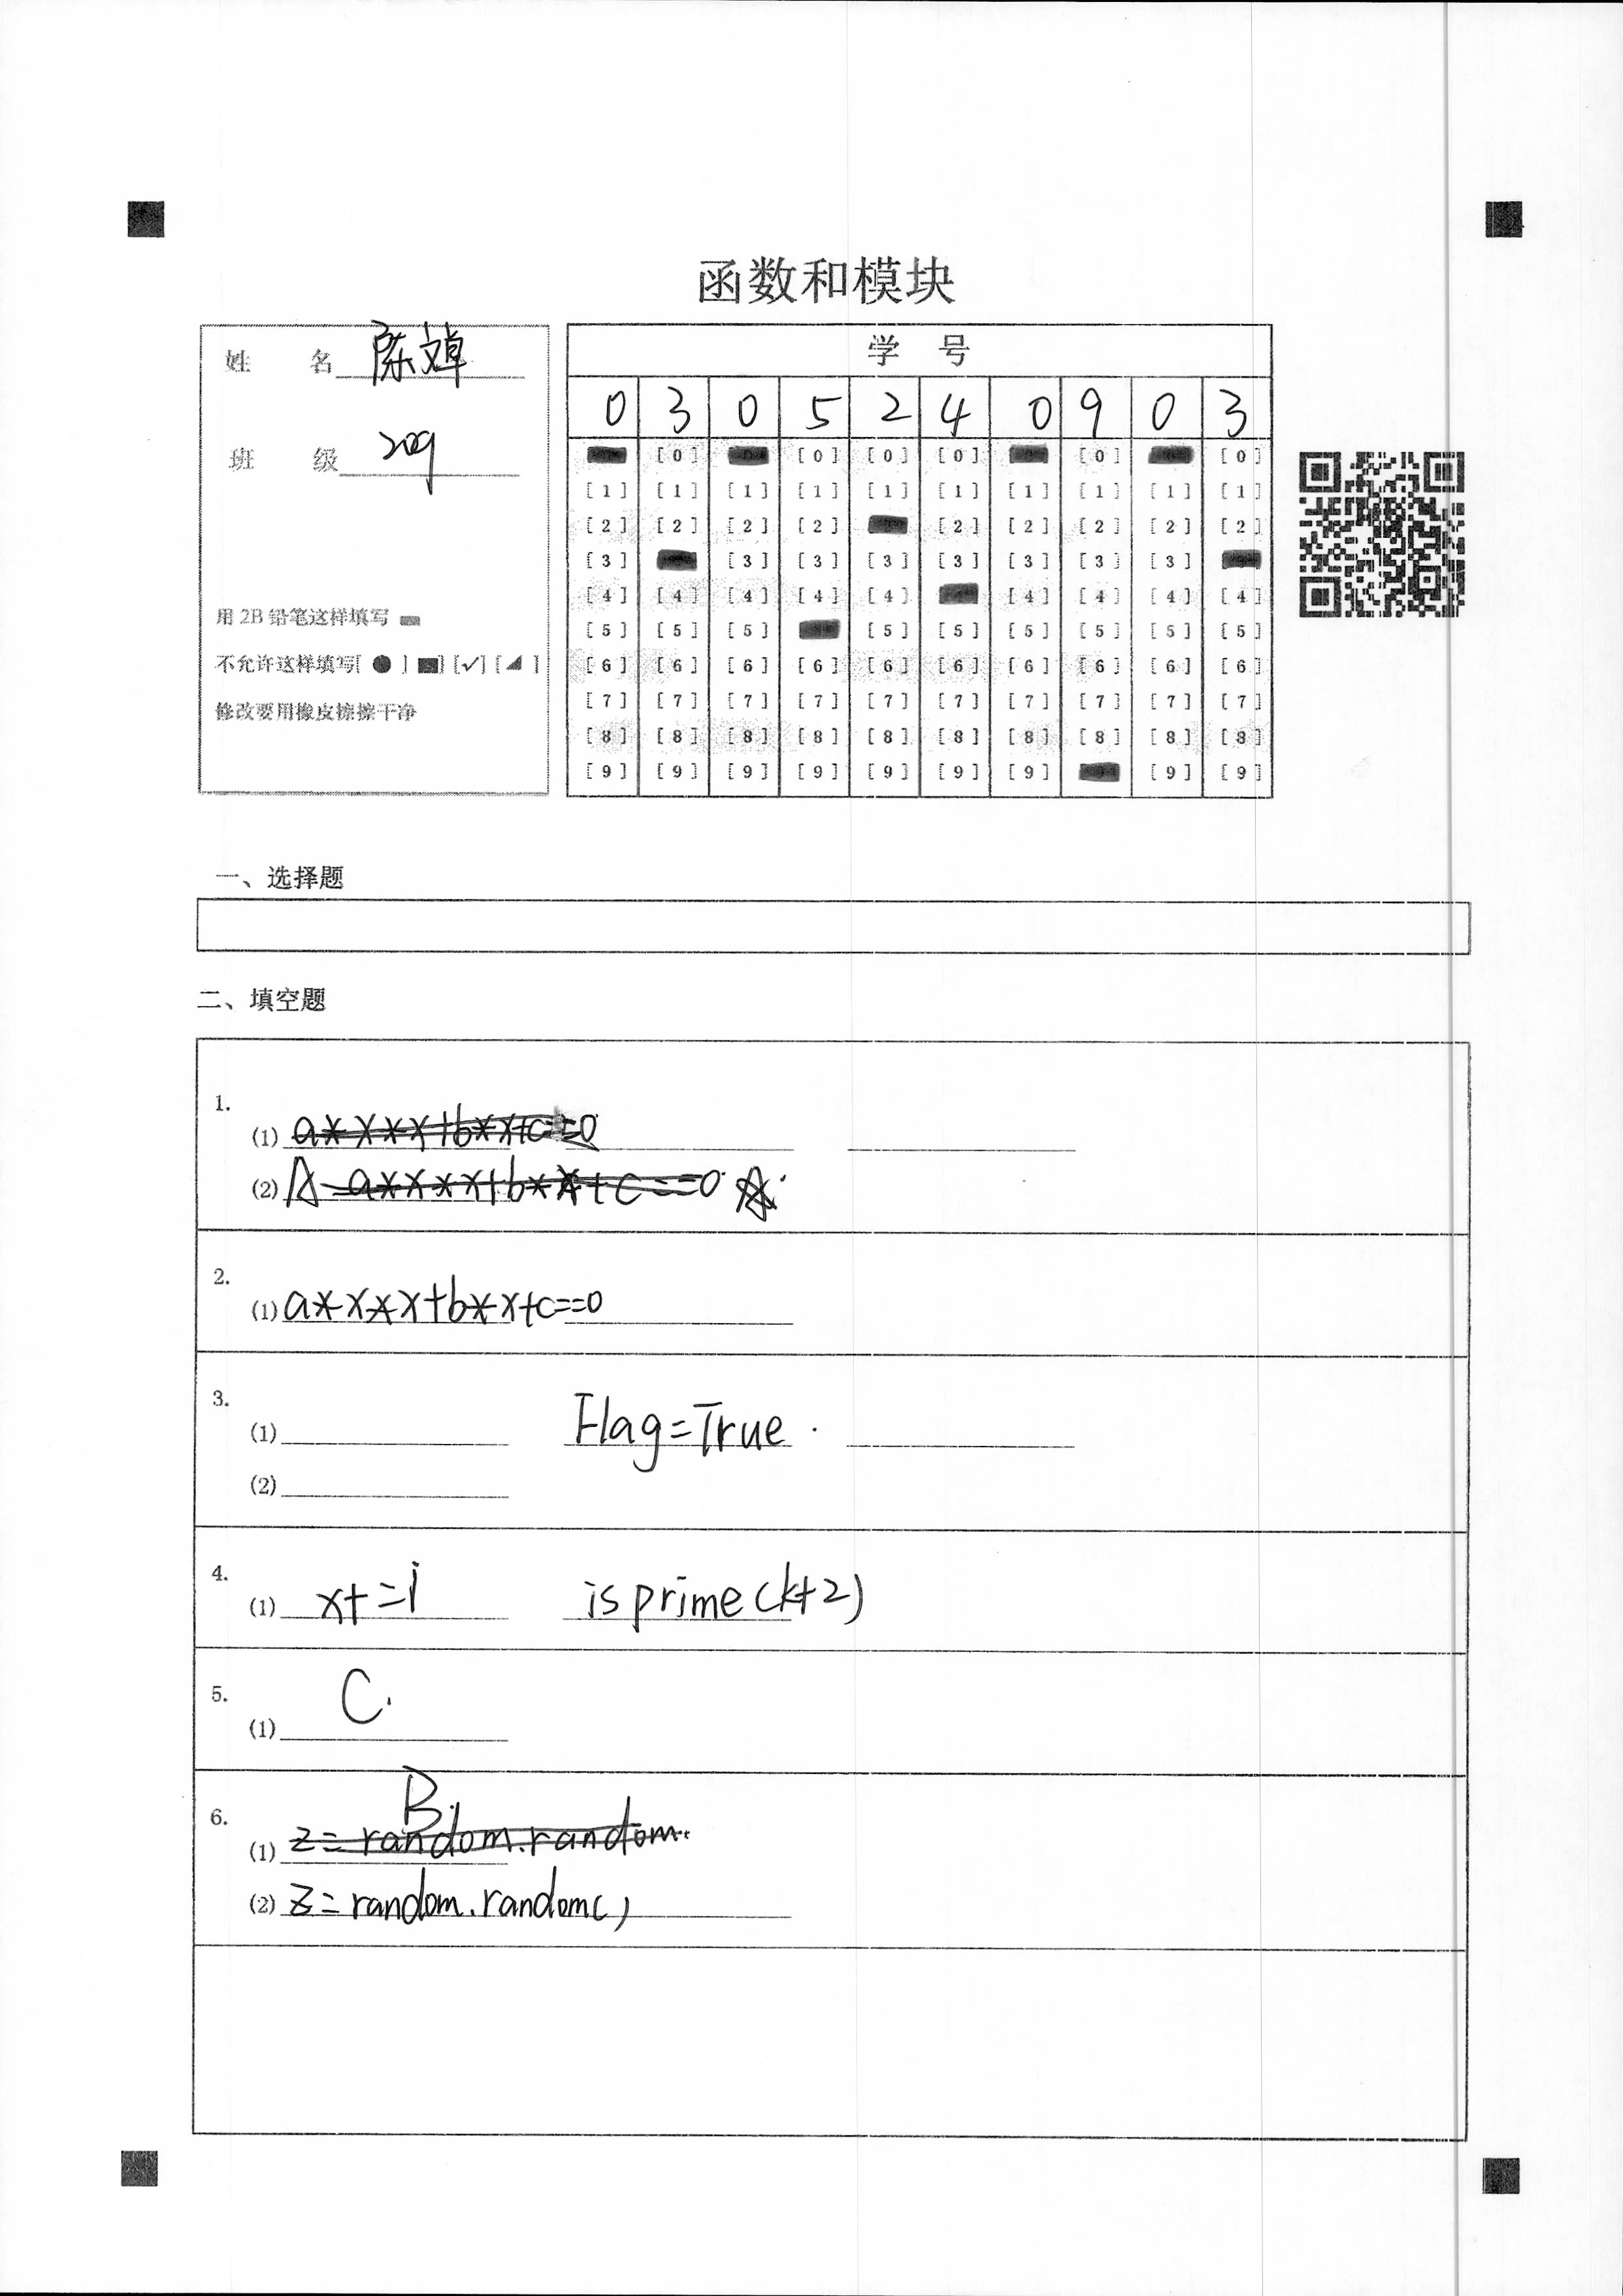 函数和模块
姓 名 陈
班 级 209
用 2B 铅笔这样填写
不允许这样填写[ ● ] [■] [✓] [◢ ]
修改要用橡皮擦擦干净
学 号
0 3 0 5 2 4 0 9 0 3
[0] [0] [0] [0] [0] [0]
[1] [1] [1] [1] [1] [1] [1] [1] [1] [1]
[2] [2] [2] [2] [2] [2] [2] [2] [2]
[3] [3] [3] [3] [3] [3] [3] [3]
[4] [4] [4] [4] [4] [4] [4] [4] [4]
[5] [5] [5] [5] [5] [5] [5] [5] [5]
[6] [6] [6] [6] [6] [6] [6] [6] [6] [6]
[7] [7] [7] [7] [7] [7] [7] [7] [7] [7]
[8] [8] [8] [8] [8] [8] [8] [8] [8] [8]
[9] [9] [9] [9] [9] [9] [9] [9] [9]
一、选择题
二、填空题
1.
(1) a*x*x+b*x+c==0
(2) A a*x*x+b*x+c==0 A
2.
(1) a*x*x+b*x+c==0
3.
(1) Flag=True
(2)
4.
(1) x+=i isprime(k+2)
5.
(1) C.
6.
B.
(1) z=random.random.
(2) z=random.random()